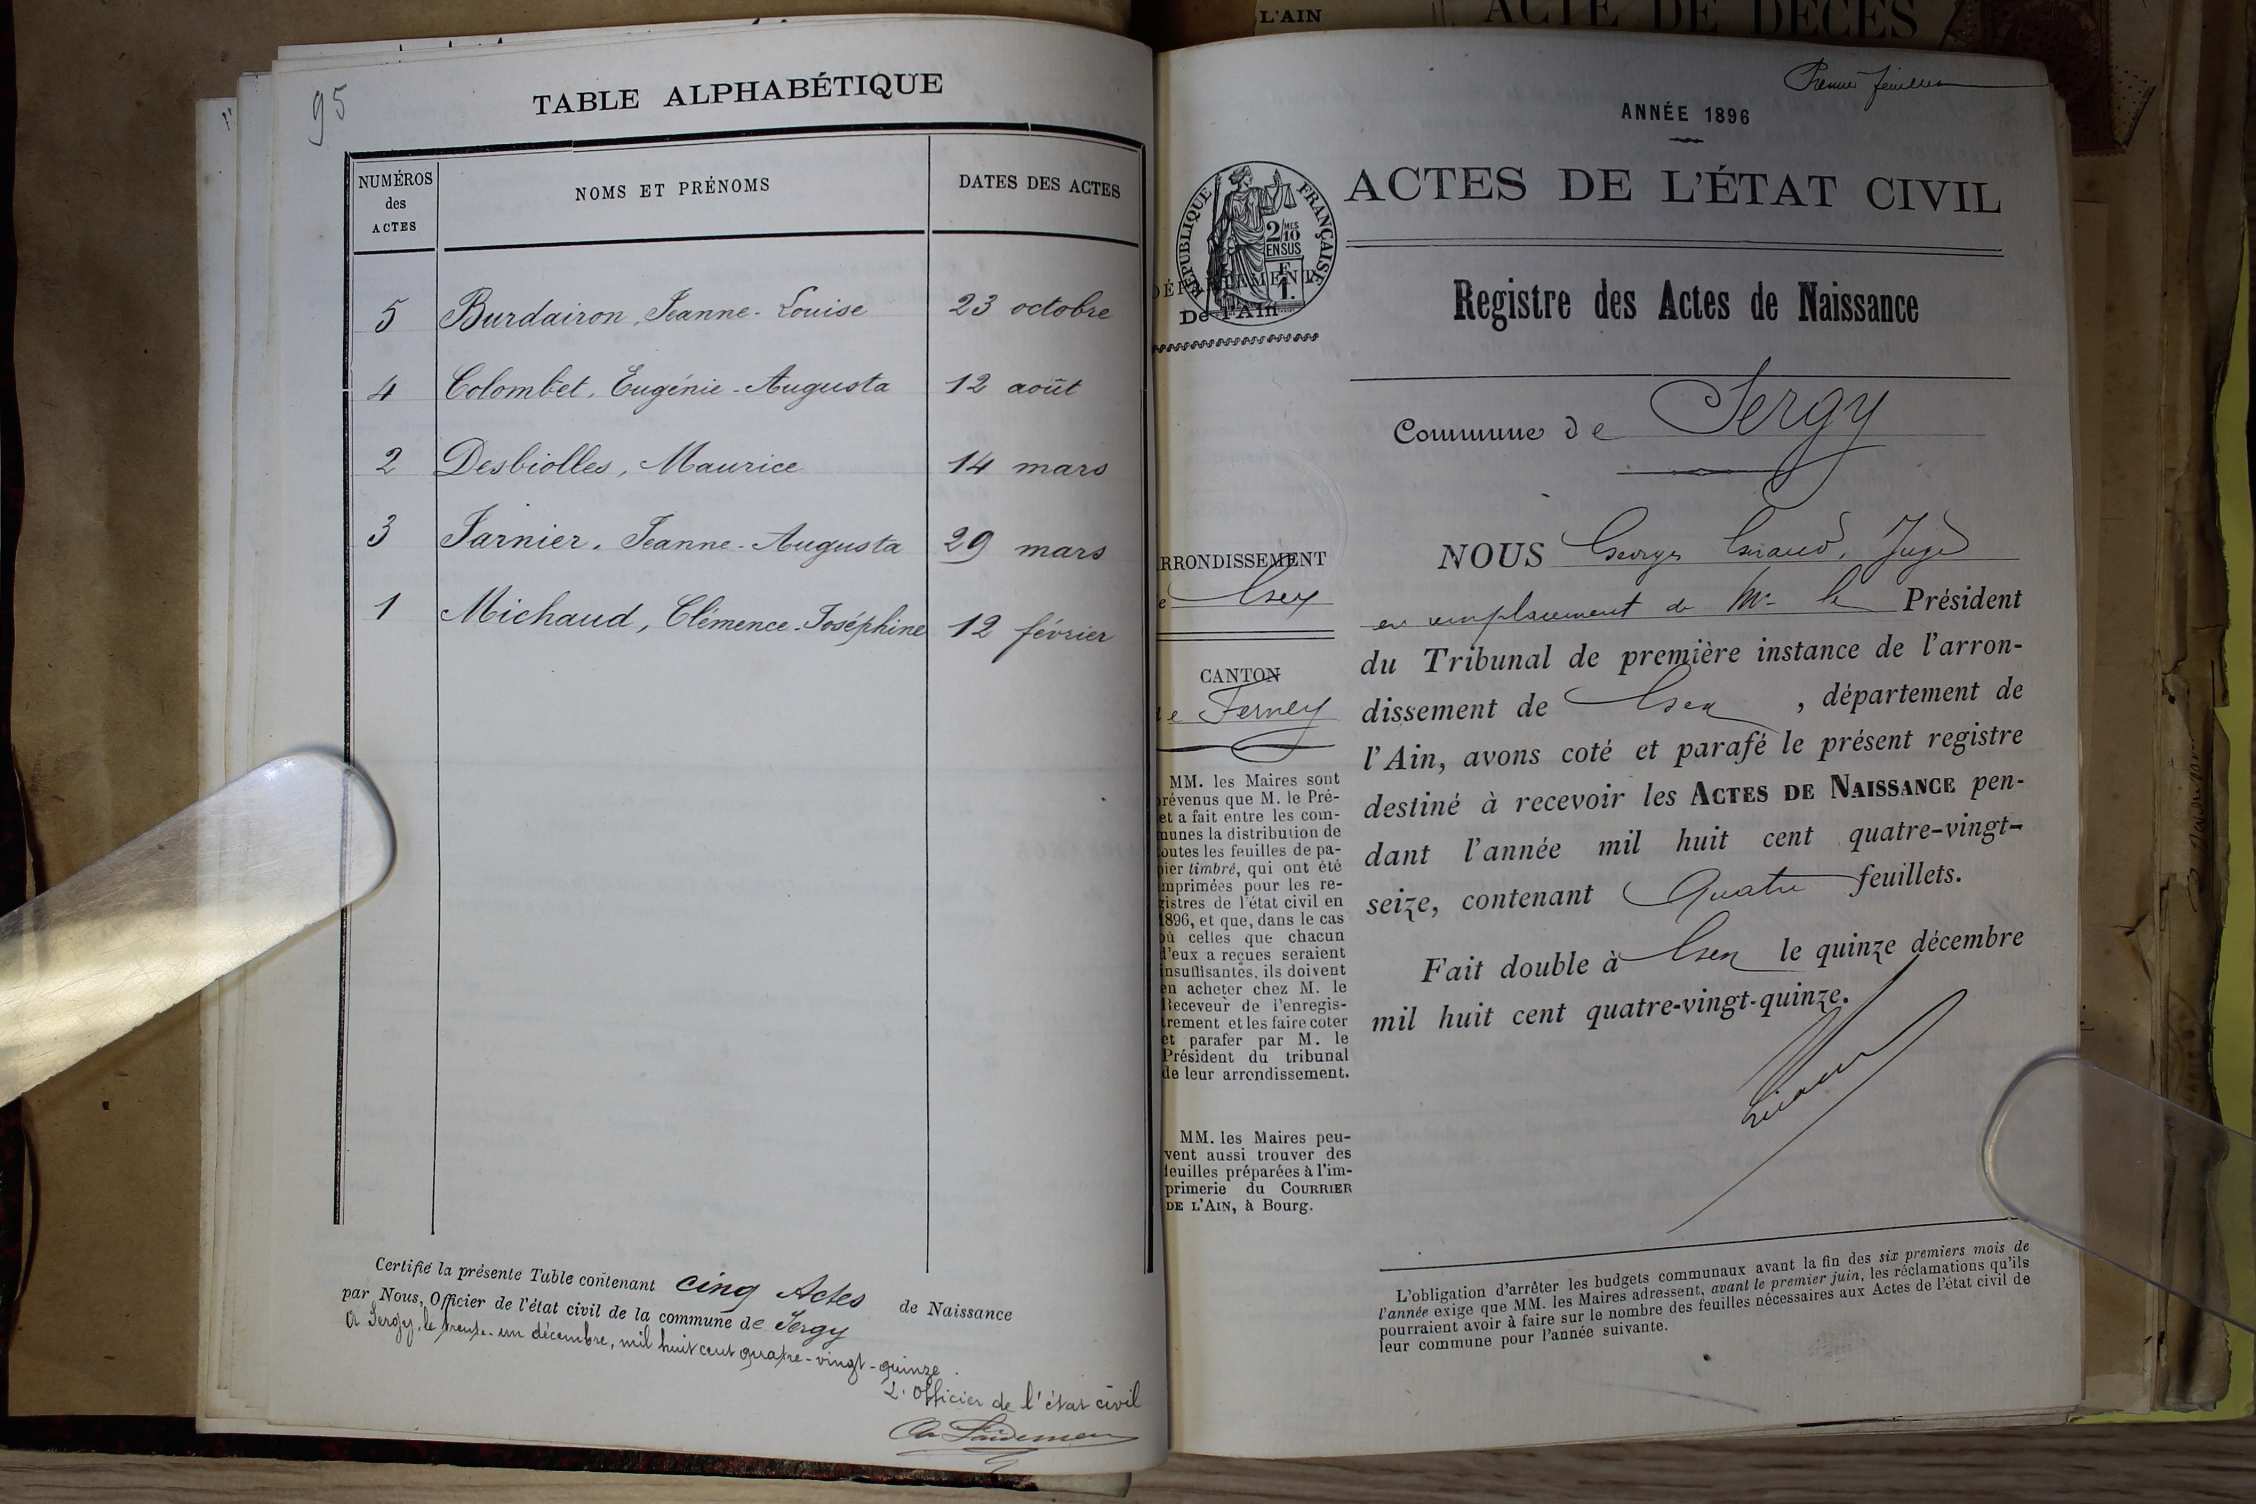 95
TABLE ALPHABÉTIQUE
NUMÉROS
des
ACTES
NOMS ET PRÉNOMS
DATES DES ACTES
5 Burdairon, Jeanne-Louise 23 octobre
4 Colombet, Eugénie-Augusta 12 août
2 Desbiolles, Maurice 14 mars
3 Jarnier, Jeanne-Augusta 29 mars
1 Michaud, Clémence-Joséphine 12 février
Certifié la présente Table contenant cinq Actes de Naissance
par Nous, Officier de l'état civil de la commune de Sergy
A Sergy, le trente-un décembre, mil huit cent quatre-vingt-quinze.
L'officier de l'état civil
L'AIN
ACTE DE DÉCÈS
Premier feuillet
ANNÉE 1896
ACTES DE L'ÉTAT CIVIL
RÉPUBLIQUE FRANÇAISE
2/10 MES
EN SUS
F
1.
DÉPARTEMENT
De l'Ain
Registre des Actes de Naissance
Commune de Sergy
RRONDISSEMENT
e Gex
CANTON
e Ferney
MM. les Maires sont
révenus que M. le Pré-
et a fait entre les com-
munes la distribution de
outes les feuilles de pa-
pier timbré, qui ont été
mprimées pour les re-
gistres de l'état civil en
1896, et que, dans le cas
où celles que chacun
d'eux a reçues seraient
insuffisantes, ils doivent
en acheter chez M. le
Receveur de l'enregis-
trement et les faire coter
et parafer par M. le
Président du tribunal
de leur arrondissement.
MM. les Maires peu-
vent aussi trouver des
feuilles préparées à l'im-
primerie du COURRIER
DE L'AIN, à Bourg.
NOUS Georges Giraud, Juge
en remplacement de Mr le Président
du Tribunal de première instance de l'arron-
dissement de Gex, département de
l'Ain, avons coté et parafé le présent registre
destiné à recevoir les ACTES DE NAISSANCE pen-
dant l'année mil huit cent quatre-vingt-
seize, contenant Quatre feuillets.
Fait double à Gex le quinze décembre
mil huit cent quatre-vingt-quinze.
L'obligation d'arrêter les budgets communaux avant la fin des six premiers mois de
l'année exige que MM. les Maires adressent, avant le premier juin, les réclamations qu'ils
pourraient avoir à faire sur le nombre des feuilles nécessaires aux Actes de l'état civil de
leur commune pour l'année suivante.